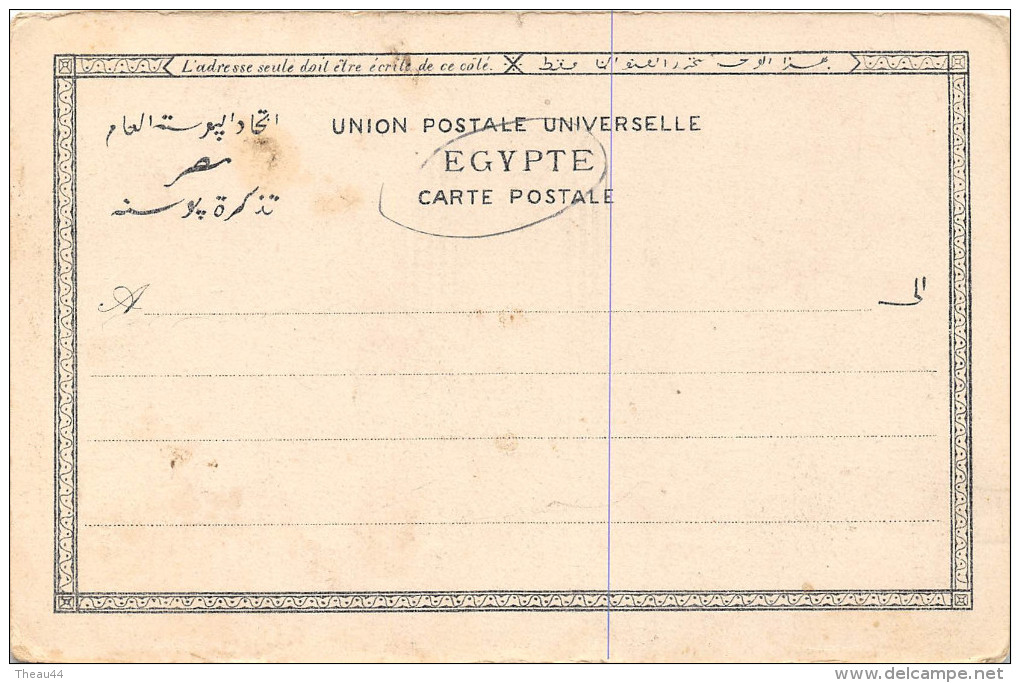 L'adresse seule doit être écrite de ce côté.
اتحاد البوستة العام
مصر
تذكرة بوسته
UNION POSTALE UNIVERSELLE
EGYPTE
CARTE POSTALE
A
الى
Theau44
delcampe.net